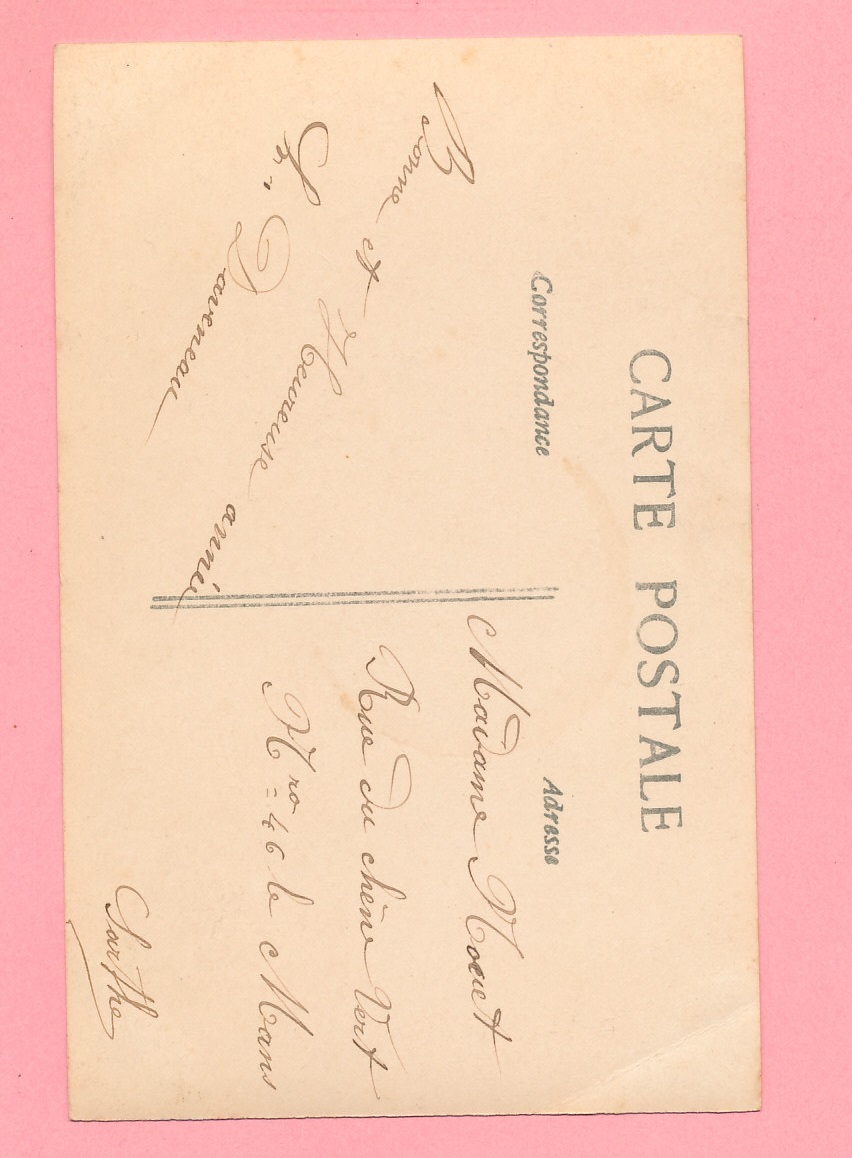 CARTE POSTALE
Correspondance
Bonne et Heureuse année
Daveneau
Adresse
Madame
Rue du chêne Vert
Nro = 46 le Mans
Sarthe